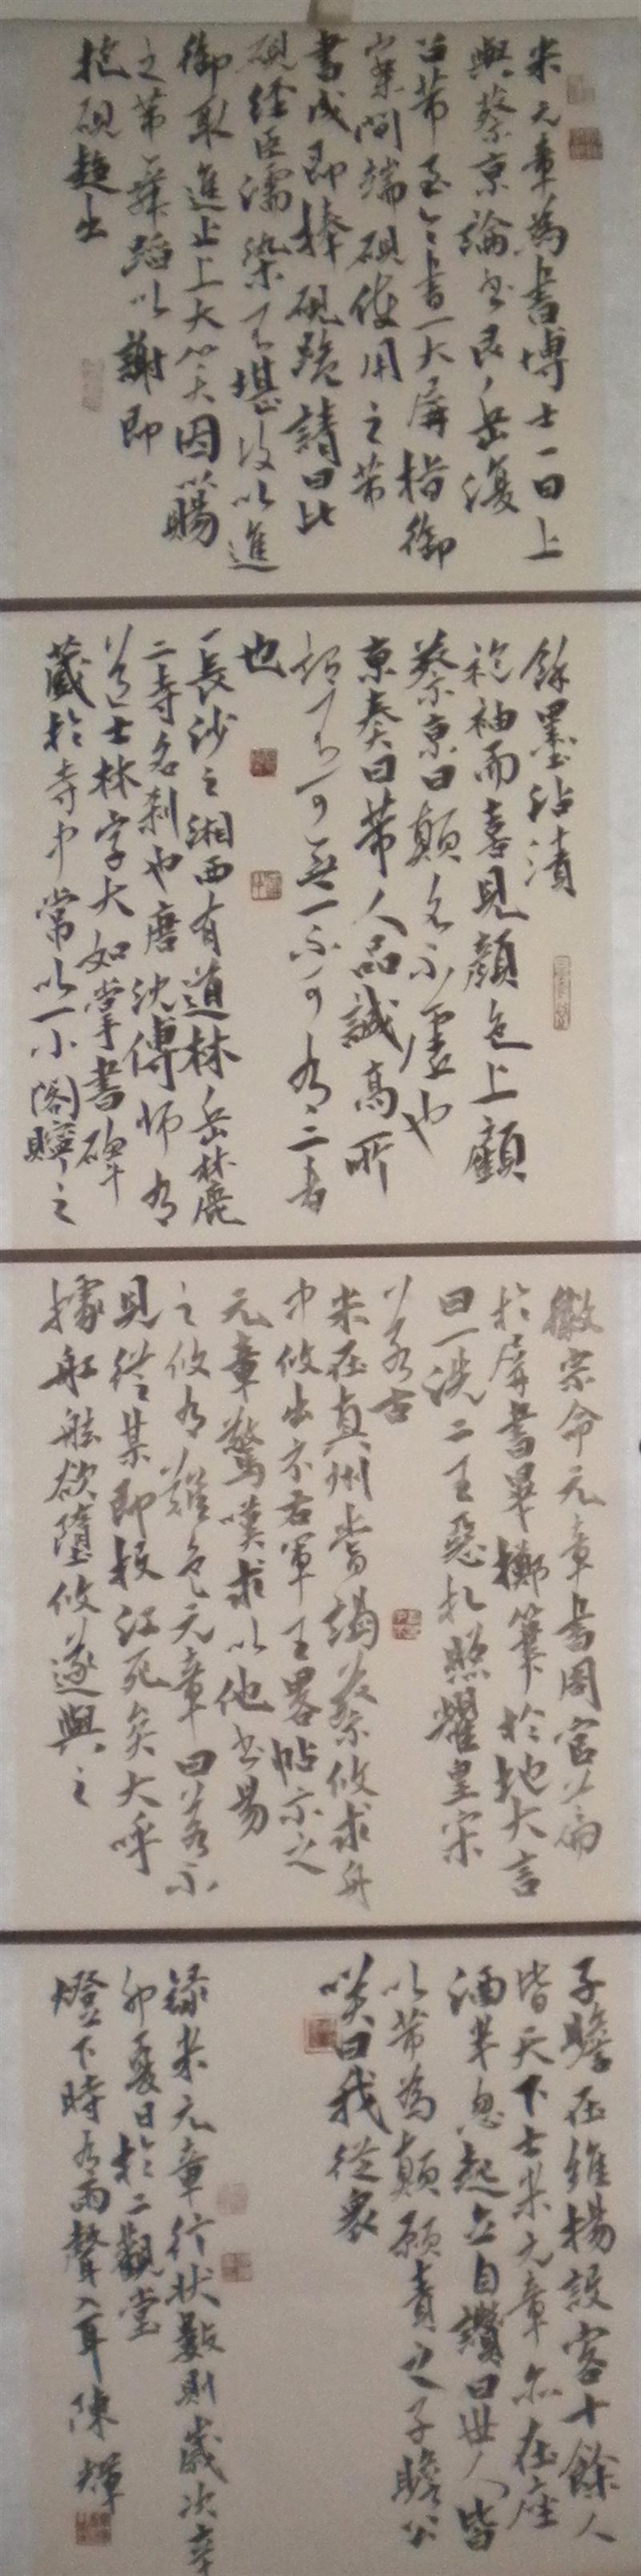 米元章為書博士一日上
與蔡京論書艮岳復
召芾至令書一大屏指御
案間端硯使用之芾
書成即捧硯跪請曰此
硯經臣濡染不堪復以進
御取進止上大笑因以賜
之芾舞蹈以謝即
抱硯趨出
餘墨沾漬
袍袖而喜見顏色上顧
蔡京曰顛名不虛也
京奏曰芾人品誠高所
謂不可無一不可有二者
也
長沙之湘西有道林岳麓
二寺名刹也唐沈傅師有
道士林字大如掌書碑
藏於寺中常以一小閣貯之
徽宗命元章書周官篇
於屏書畢擲筆於地大言
曰一洗二王惡札照耀皇宋
萬古
米在真州嘗謁蔡攸求舟
中攸出示右軍王畧帖示之
元章驚嘆求以他書易
之攸有難色元章曰若不
見從某即投江死矣大呼
據舡舷欲墮攸遂與之
子瞻在維揚設客十餘人
皆天下士米元章亦在座
酒半忽起立自讚曰世人皆
以芾為顛願質之子瞻公
笑曰我從衆
録米元章行狀數則歲次辛
卯夏日於二觀堂
燈下時有雨聲入耳陳輝